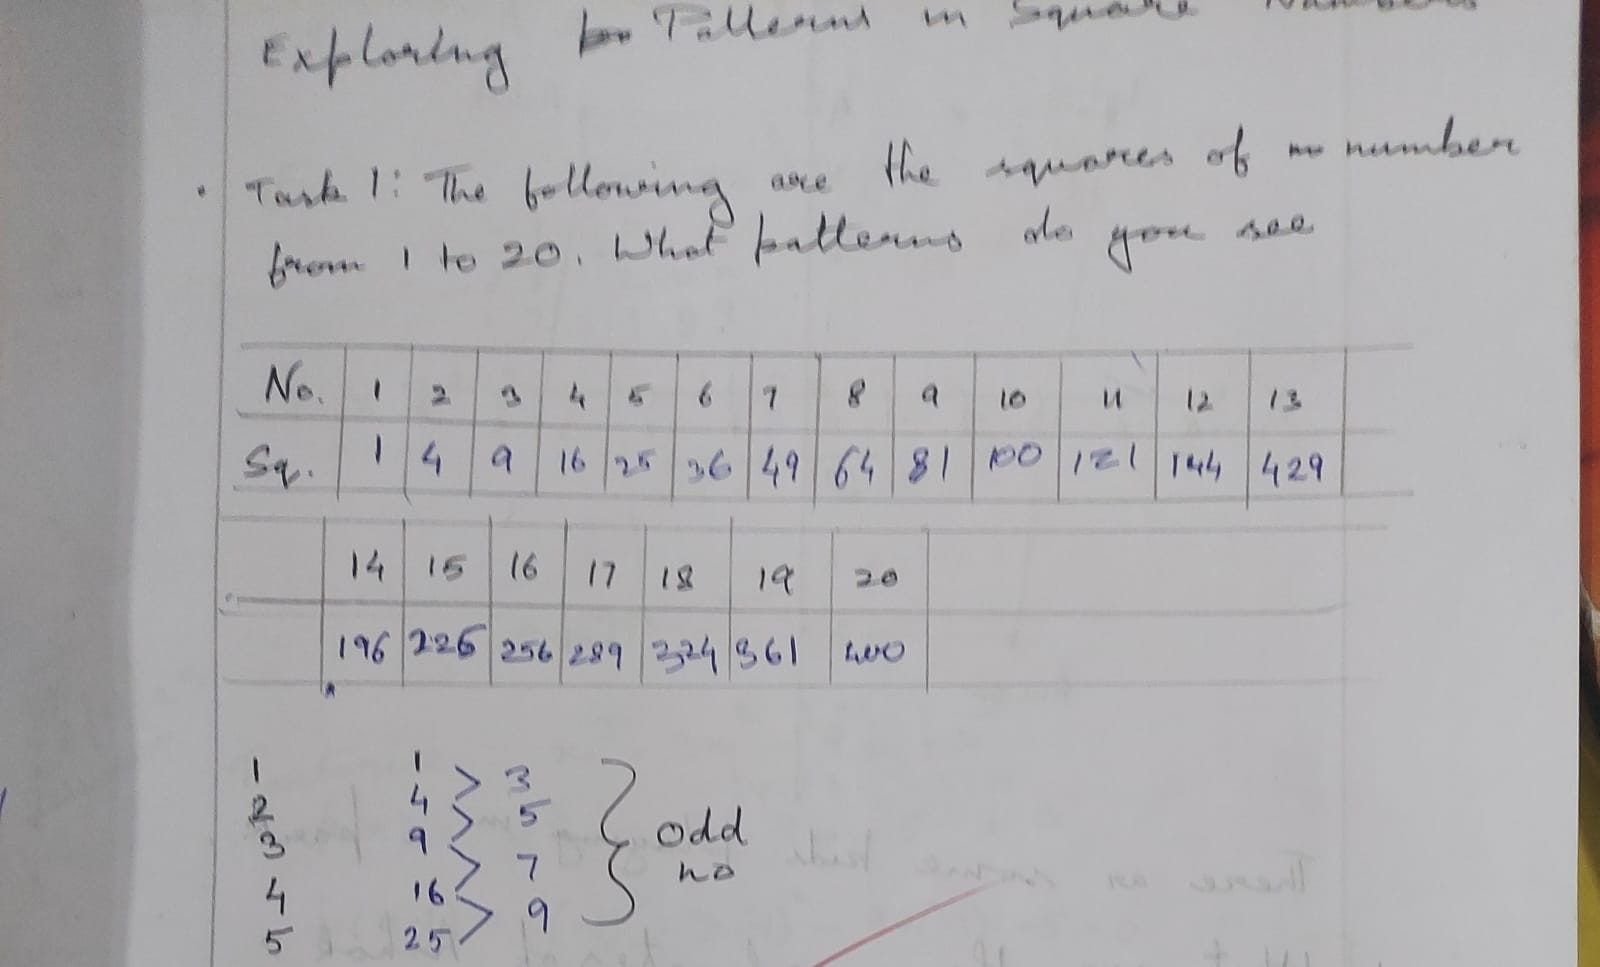 Exploring Patterns in Square Numbers
Task 1: The following are the squares of number
from 1 to 20. What patterns do you see
No. 1 2 3 4 5 6 7 8 9 10 11 12 13
Sq. 1 4 9 16 25 36 49 64 81 100 121 144 429
14 15 16 17 18 19 20
196 225 256 289 324 361 400
1 1
3
2 4
5
3 9 odd
7 no
4 16
9
5 25